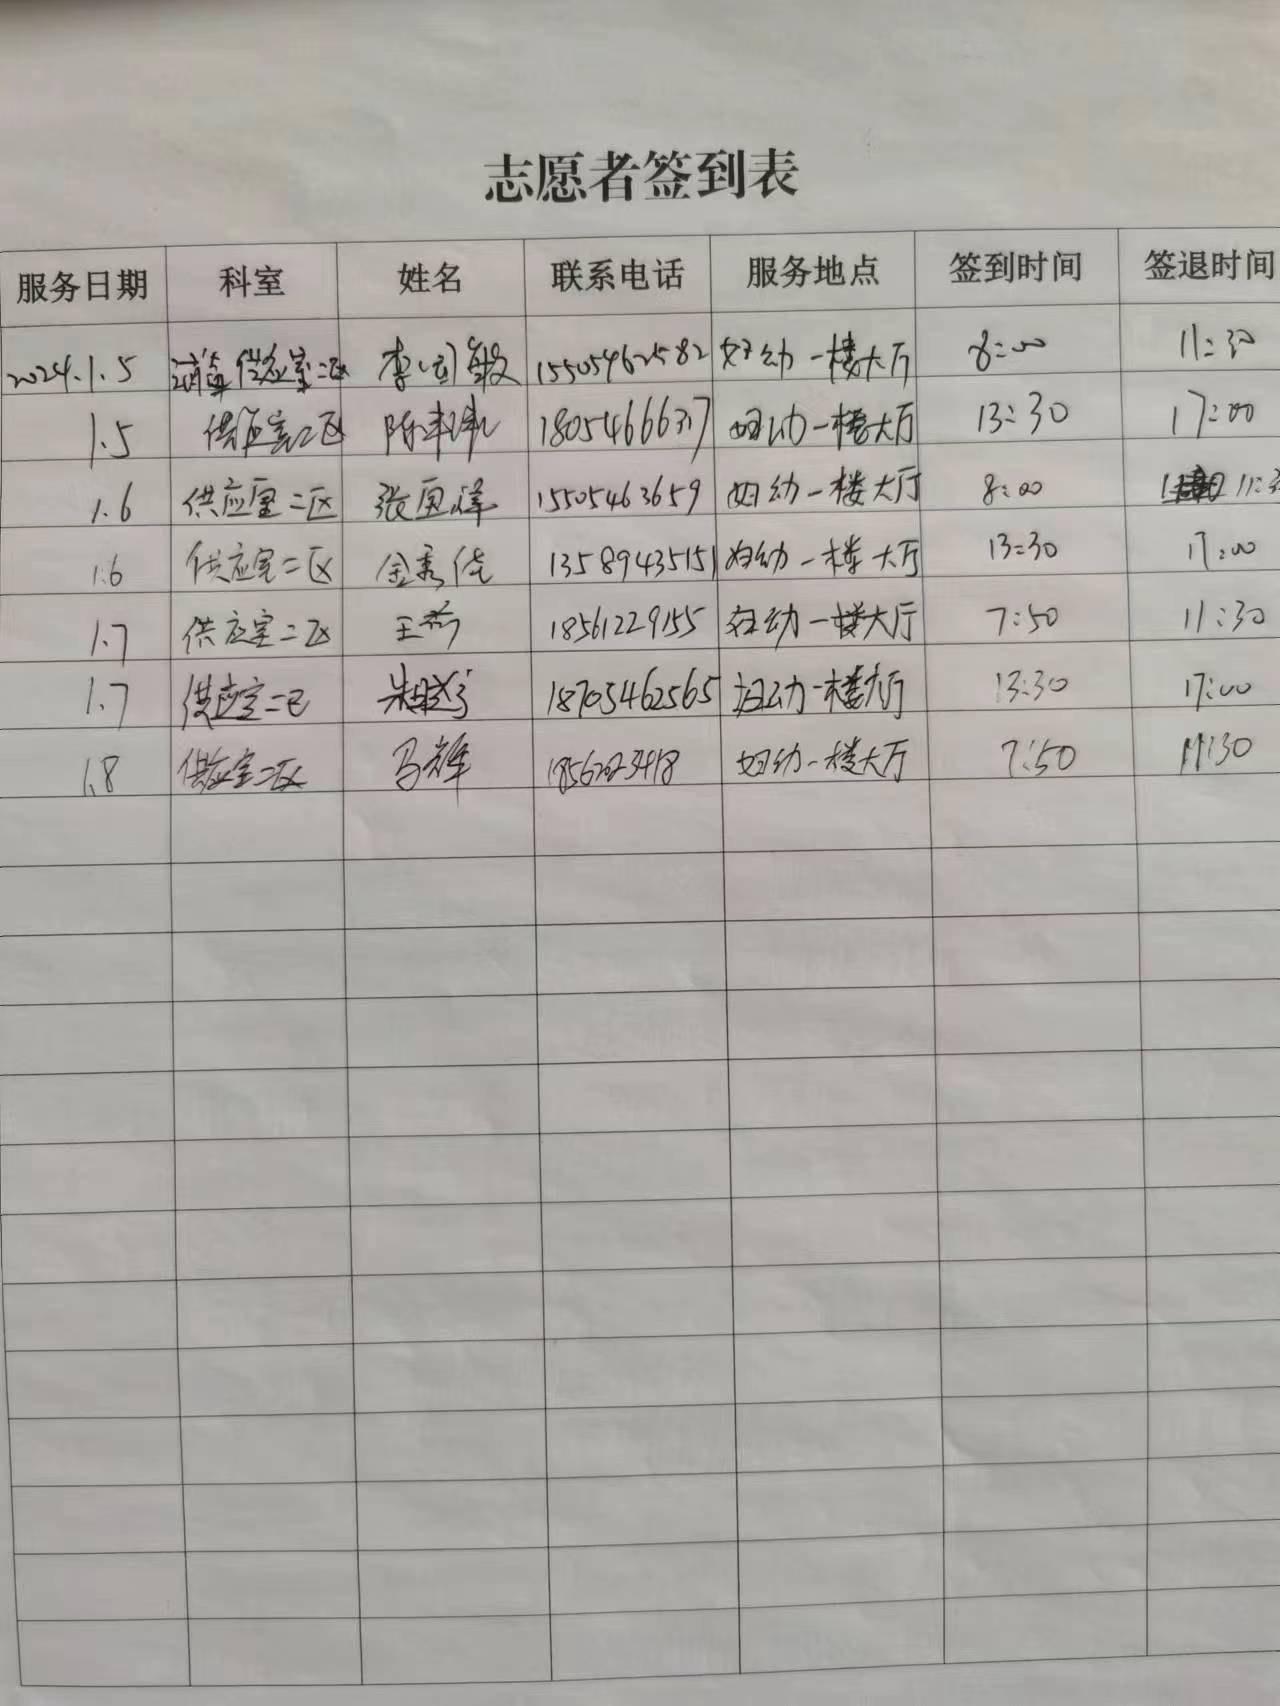 志愿者签到表
服务日期 科室 姓名 联系电话 服务地点 签到时间 签退时间
2024.1.5 消毒供应室二区 李 敏 15505462582 妇幼一楼大厅 8:00 11:30
1.5 供应室二区 陈 18054666317 妇幼一楼大厅 13:30 17:00
1.6 供应室二区 张 15505463659 妇幼一楼大厅 8:00 11:3
1.6 供应室二区 金秀佳 13589435151 妇幼一楼大厅 13:30 17:00
1.7 供应室二区 王芬 18561229155 妇幼一楼大厅 7:50 11:30
1.7 供应室二区 朱 18705462565 妇幼一楼大厅 13:30 17:00
1.8 供应室二区 马辉 妇幼一楼大厅 7:50 11:30